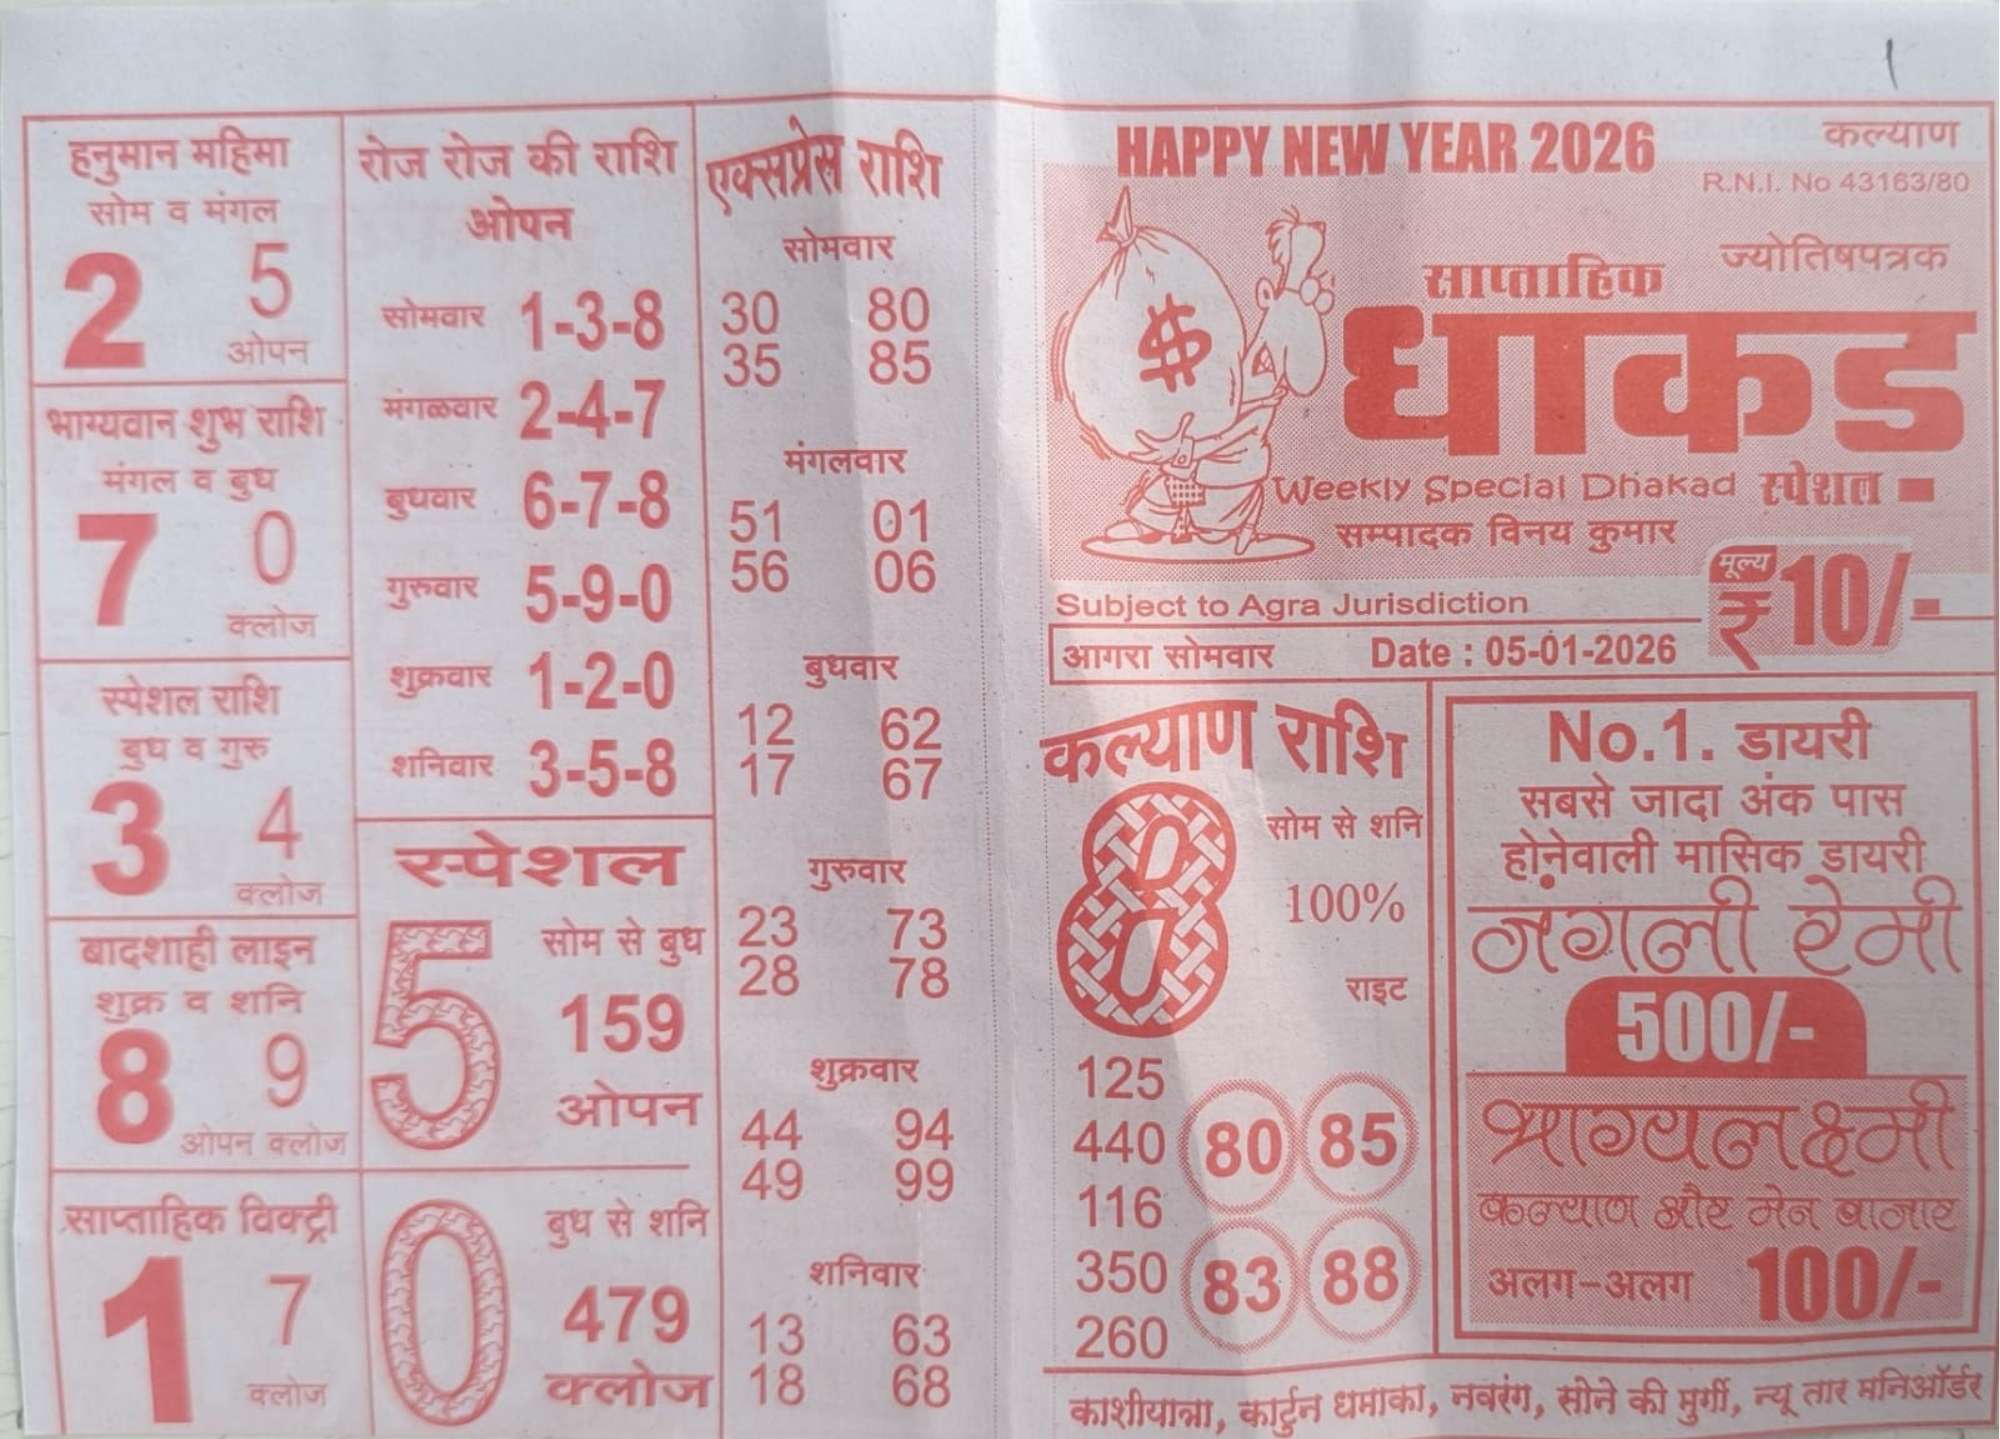 हनुमान महिमा
सोम व मंगल
2 5
ओपन
भाग्यवान शुभ राशि
मंगल व बुध
7 0
क्लोज
स्पेशल राशि
बुध व गुरु
3 4
क्लोज
बादशाही लाइन
शुक्र व शनि
8 9
ओपन क्लोज
साप्ताहिक विक्ट्री
1 7
क्लोज
रोज रोज की राशि
ओपन
सोमवार 1-3-8
मंगळवार 2-4-7
बुधवार 6-7-8
गुरुवार 5-9-0
शुक्रवार 1-2-0
शनिवार 3-5-8
स्पेशल
5 सोम से बुध
159
ओपन
0 बुध से शनि
479
क्लोज
एक्सप्रेस राशि
सोमवार
30 80
35 85
मंगलवार
51 01
56 06
बुधवार
12 62
17 67
गुरुवार
23 73
28 78
शुक्रवार
44 94
49 99
शनिवार
13 63
18 68
HAPPY NEW YEAR 2026
कल्याण
R.N.I. No 43163/80
साप्ताहिक ज्योतिषपत्रक
$
धाकड
Weekly Special Dhakad स्पेशल
सम्पादक विनय कुमार
मूल्य
₹10/-
Subject to Agra Jurisdiction
आगरा सोमवार Date : 05-01-2026
कल्याण राशि
8 सोम से शनि
100%
राइट
125
440
116
350
260
80 85
83 88
No.1. डायरी
सबसे जादा अंक पास
होनेवाली मासिक डायरी
जंगली रेमी
500/-
भाग्यलक्ष्मी
कल्याण और मेन बाजार
अलग-अलग 100/-
काशीयात्रा, कार्टुन धमाका, नवरंग, सोने की मुर्गी, न्यू तार मनिऑर्डर